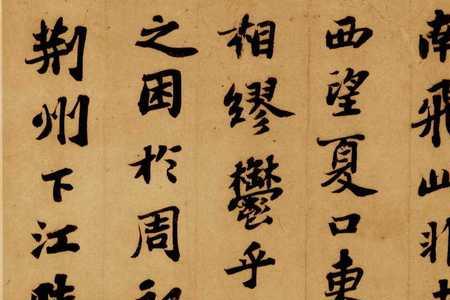 南飛此非
西望夏口東
相繆鬱乎
之困於周
荊州下江陵